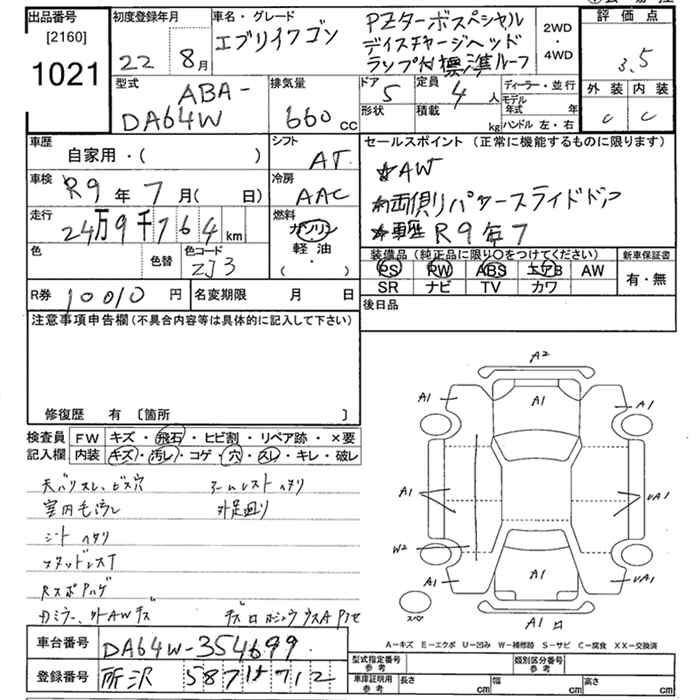 出品番号
[2160]
1021
初度登録年月
22 8月
車名・グレード
エブリイワゴン
PZターボスペシャル
ディスチャージヘッド
ランプ付標準ルーフ
2WD
・
4WD
評価点
3.5
外装 内装
C C
型式
ABA-
DA64W
排気量
660 cc
ドア
5
定員
4人
形状
積載
kg
ディーラー・並行
モデル年式 年
ハンドル 左・右
車歴
自家用・( )
シフト
AT
車検
R9年7月( 日)
冷房
AAC
走行
24万9千764km
燃料
ガソリン
軽・油
・( )
色
色替
色コード
ZJ3
R券 10010円
名変期限 月 日
セールスポイント (正常に機能するものに限ります)
☆AW
☆両側リパワースライドドア
☆車検 R9年7
装備品(純正品に限り○をつけてください)
PS PW ABS エアB AW
SR ナビ TV カワ
新車保証書
有・無
後日品
注意事項申告欄(不具合内容等は具体的に記入して下さい)
修復歴 有 〔箇所 〕
検査員記入欄
FW キズ・飛石・ヒビ割・リペア跡・×要
内装 キズ・汚レ・コゲ・穴・スレ・キレ・破レ
天バリスレ、ビス穴
アームレストヘタリ
室内毛汚レ
外足廻り
シートヘタリ
Rスポハゲ
車台番号 DA64W-354699
登録番号 所沢 587 712
A2
A1
A1
A1
A1
UA1
W2
A1
A1
UA1
スペア
A1
A-キズ E-エクボ U-凹み W-補修跡 S-サビ C-腐食 XX-交換済
型式指定番号
参考
類別区分番号
参考
車庫証明用
参考
長さ cm
幅 cm
高さ cm